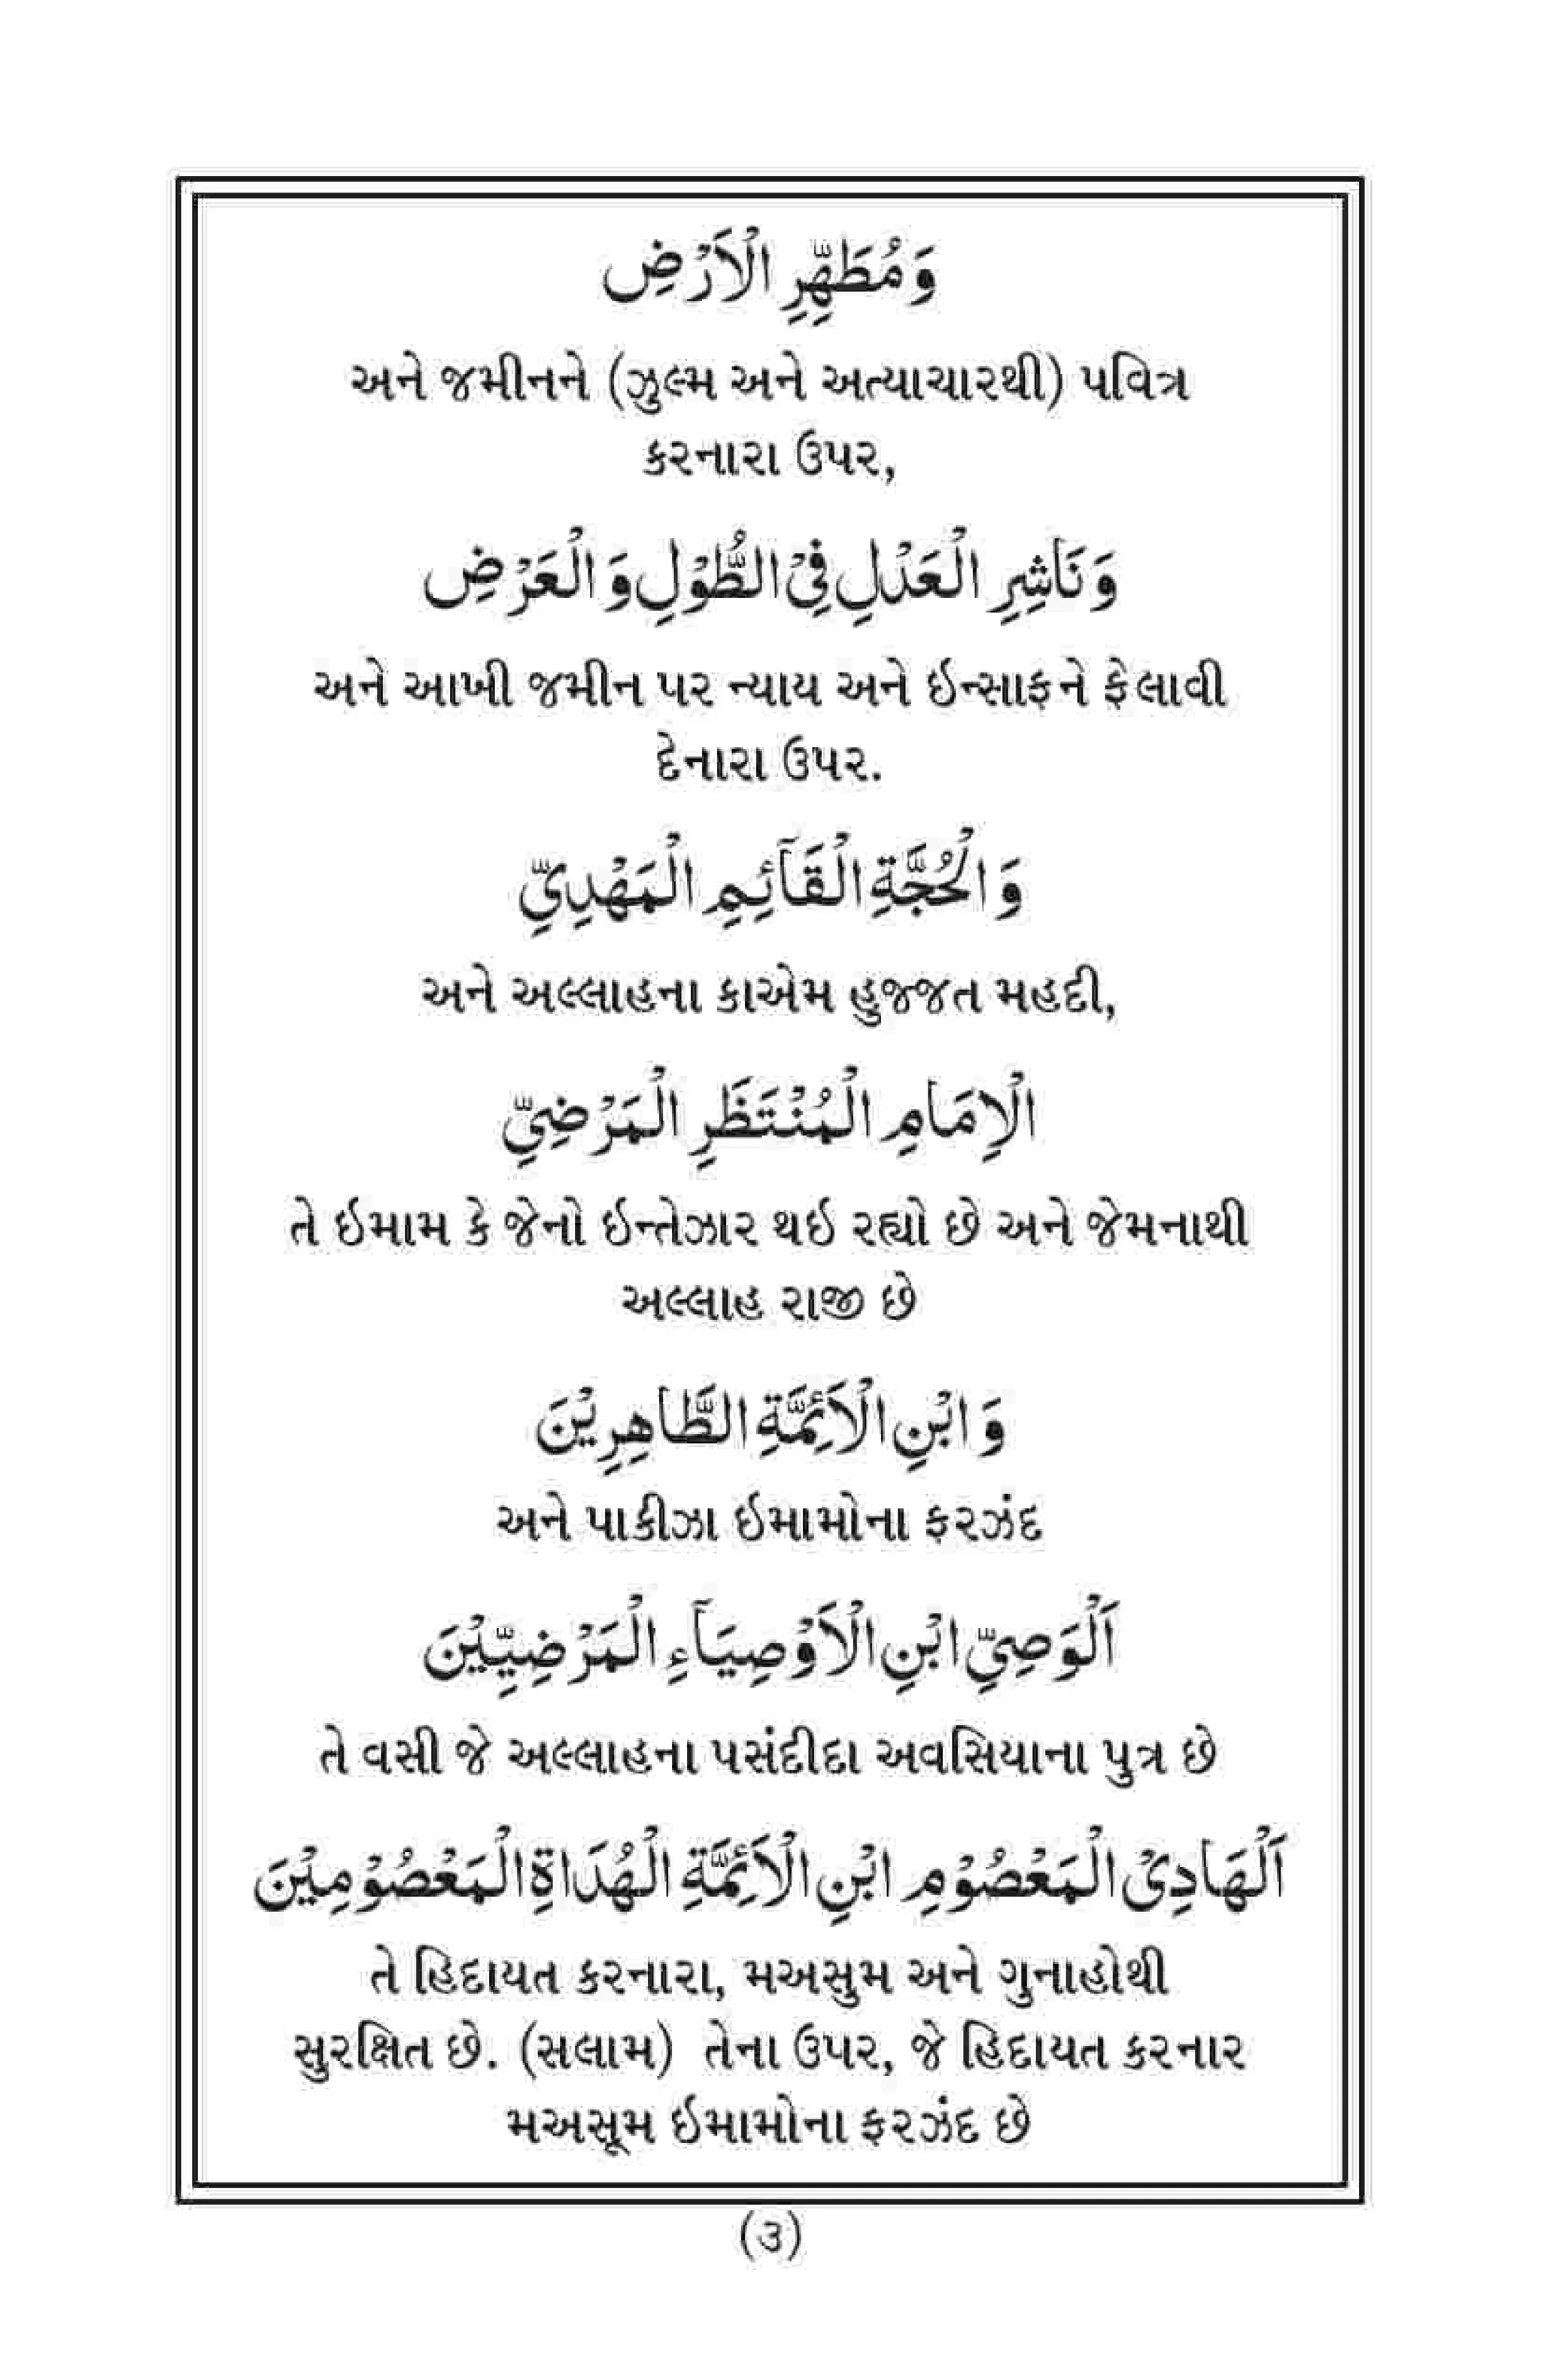 وَ مُطَهِّرِ الْاَرْضِ
અને જમીનને (ઝુલ્મ અને અત્યાચારથી) પવિત્ર
કરનારા ઉપર,
وَ نَاشِرِ الْعَدْلِ فِیْ الطُّوْلِ وَ الْعَرْضِ
અને આખી જમીન પર ન્યાય અને ઇન્સાફને ફેલાવી
દેનારા ઉપર.
وَ الْحُجَّةِ الْقَآئِمِ الْمَهْدِیِّ
અને અલ્લાહના કાએમ હુજ્જત મહદી,
الْاِمَامِ الْمُنْتَظَرِ الْمَرْضِیِّ
તે ઇમામ કે જેનો ઇન્તેઝાર થઇ રહ્યો છે અને જેમનાથી
અલ્લાહ રાજી છે
وَ ابْنِ الْاَئِمَّةِ الطَّاهِرِیْنَ
અને પાકીઝા ઇમામોના ફરઝંદ
اَلْوَصِیِّ ابْنِ الْاَوْصِیَآءِ الْمَرْضِیِّیْنَ
તે વસી જે અલ્લાહના પસંદીદા અવસિયાના પુત્ર છે
اَلْهَادِیْ الْمَعْصُوْمِ ابْنِ الْاَئِمَّةِ الْهُدَاةِ الْمَعْصُوْمِیْنَ
તે હિદાયત કરનારા, મઅસુમ અને ગુનાહોથી
સુરક્ષિત છે. (સલામ) તેના ઉપર, જે હિદાયત કરનાર
મઅસૂમ ઇમામોના ફરઝંદ છે
(૩)